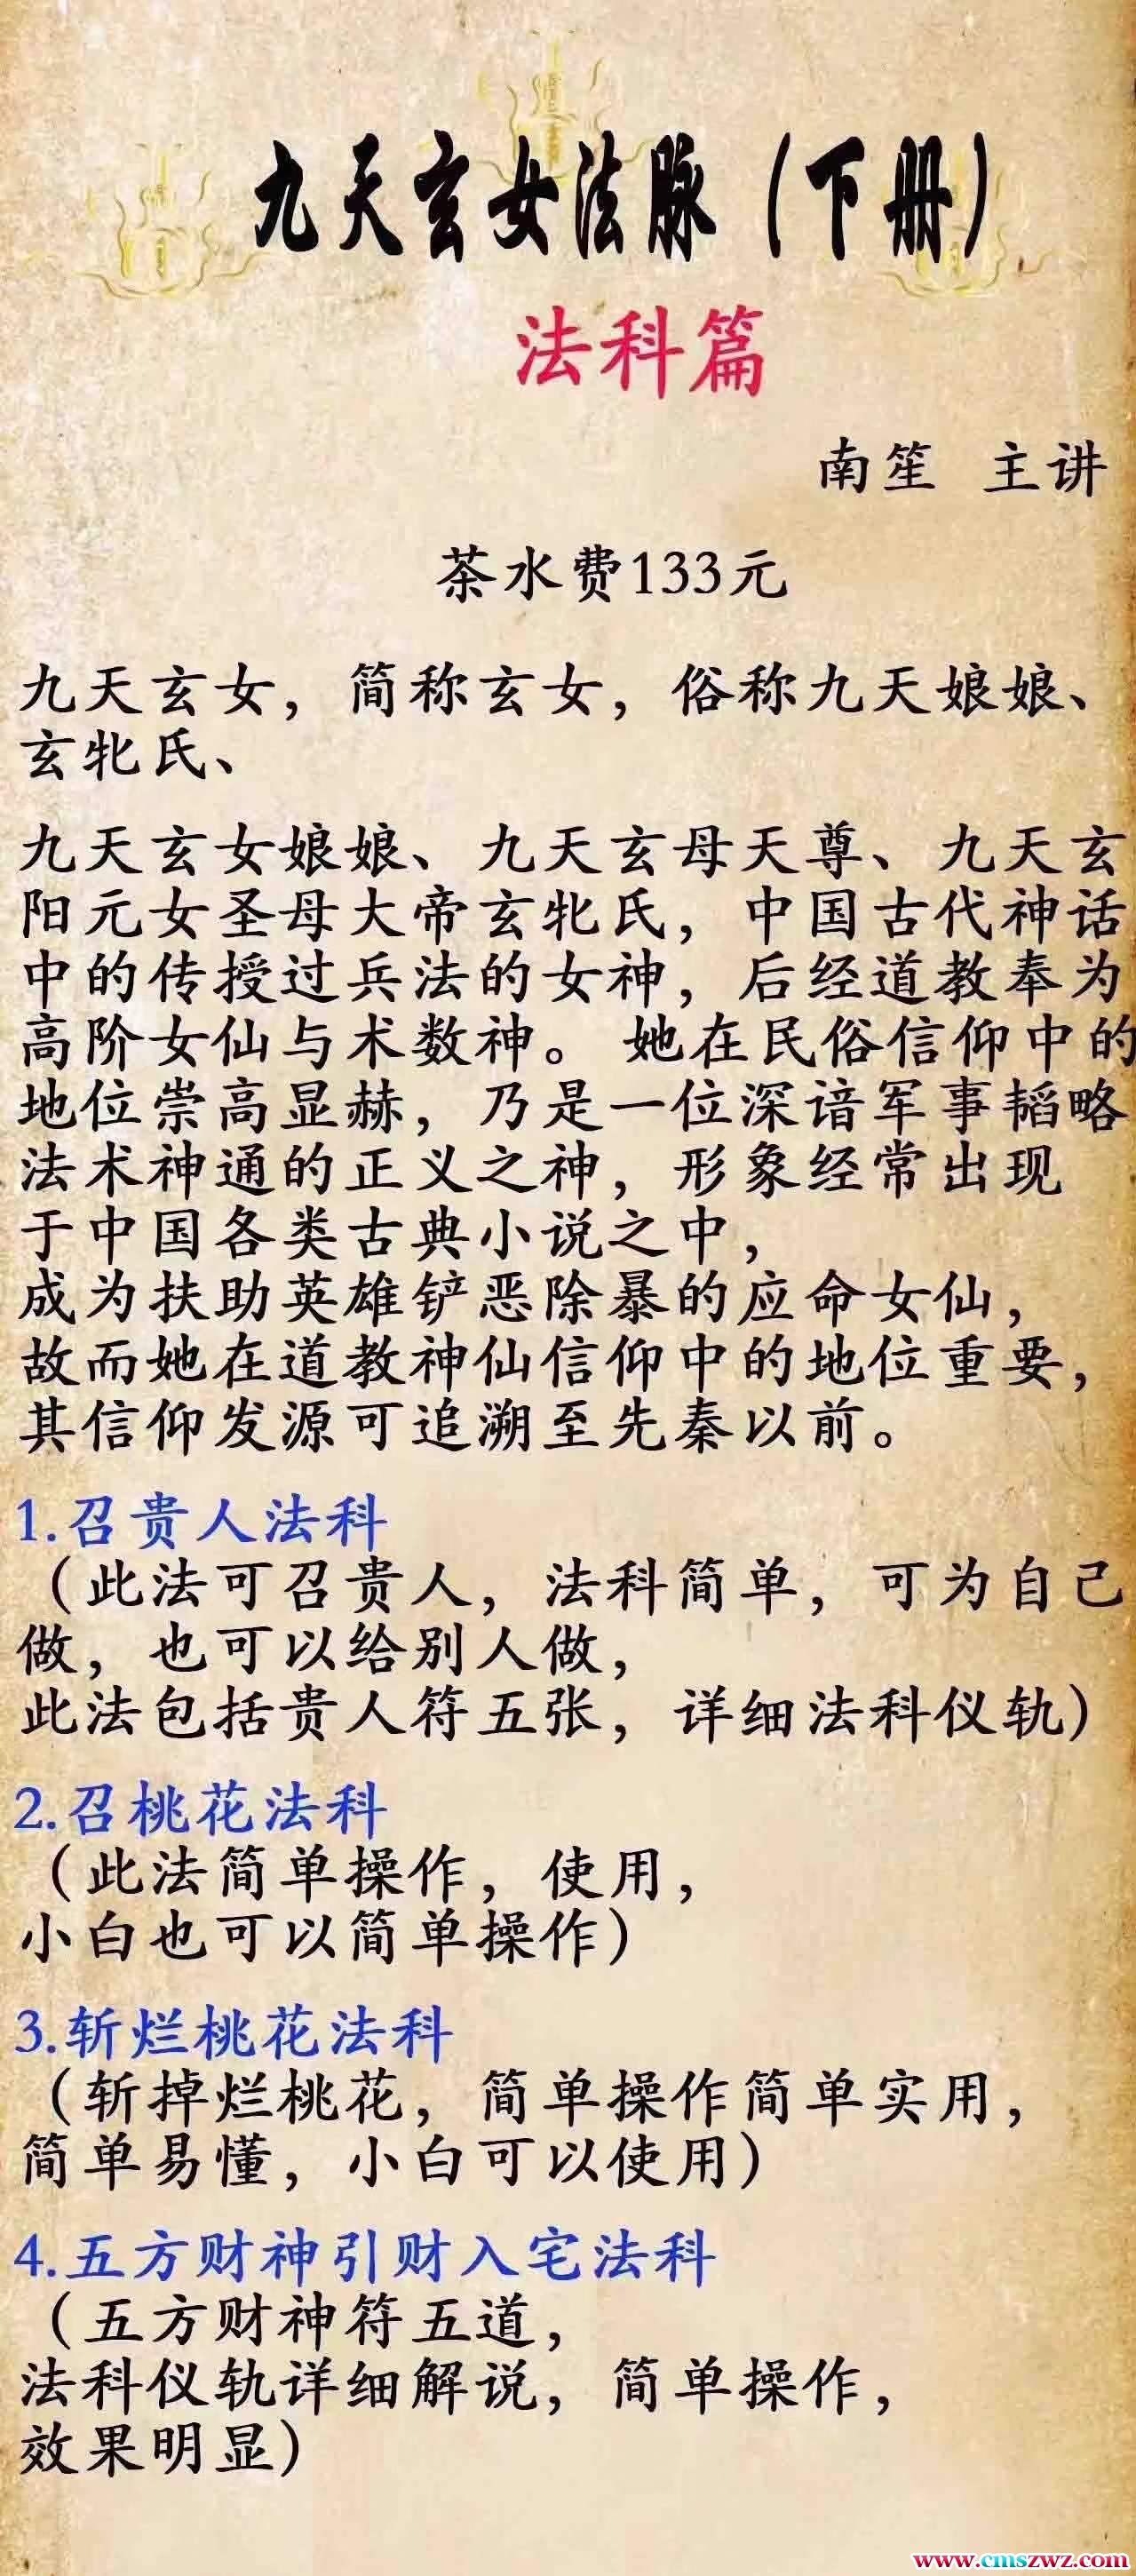 九天玄女法脉（下册）
法科篇
南笙 主讲
茶水费133元
九天玄女，简称玄女，俗称九天娘娘、
玄牝氏、
九天玄女娘娘、九天玄母天尊、九天玄
阳元女圣母大帝玄牝氏，中国古代神话
中的传授过兵法的女神，后经道教奉为
高阶女仙与术数神。她在民俗信仰中的
地位崇高显赫，乃是一位深谙军事韬略
法术神通的正义之神，形象经常出现
于中国各类古典小说之中，
成为扶助英雄铲恶除暴的应命女仙，
故而她在道教神仙信仰中的地位重要，
其信仰发源可追溯至先秦以前。
1.召贵人法科
（此法可召贵人，法科简单，可为自己
做，也可以给别人做，
此法包括贵人符五张，详细法科仪轨）
2.召桃花法科
（此法简单操作，使用，
小白也可以简单操作）
3.斩烂桃花法科
（斩掉烂桃花，简单操作简单实用，
简单易懂，小白可以使用）
4.五方财神引财入宅法科
（五方财神符五道，
法科仪轨详细解说，简单操作，
效果明显）
www.cmszwz.com